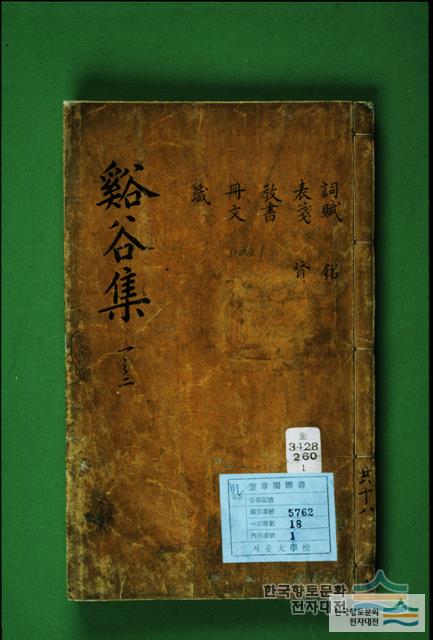 谿谷集 一之二
詞賦 銘
表箋 賛
敎書
冊文
箴
共十八
奎
3428
260
1
奎章閣圖書
分類記號
圖書番號 5762
一部冊數 18
內冊番號 1
서울大學校
한국향토문화
전자대전
한국향토문화
전자대전